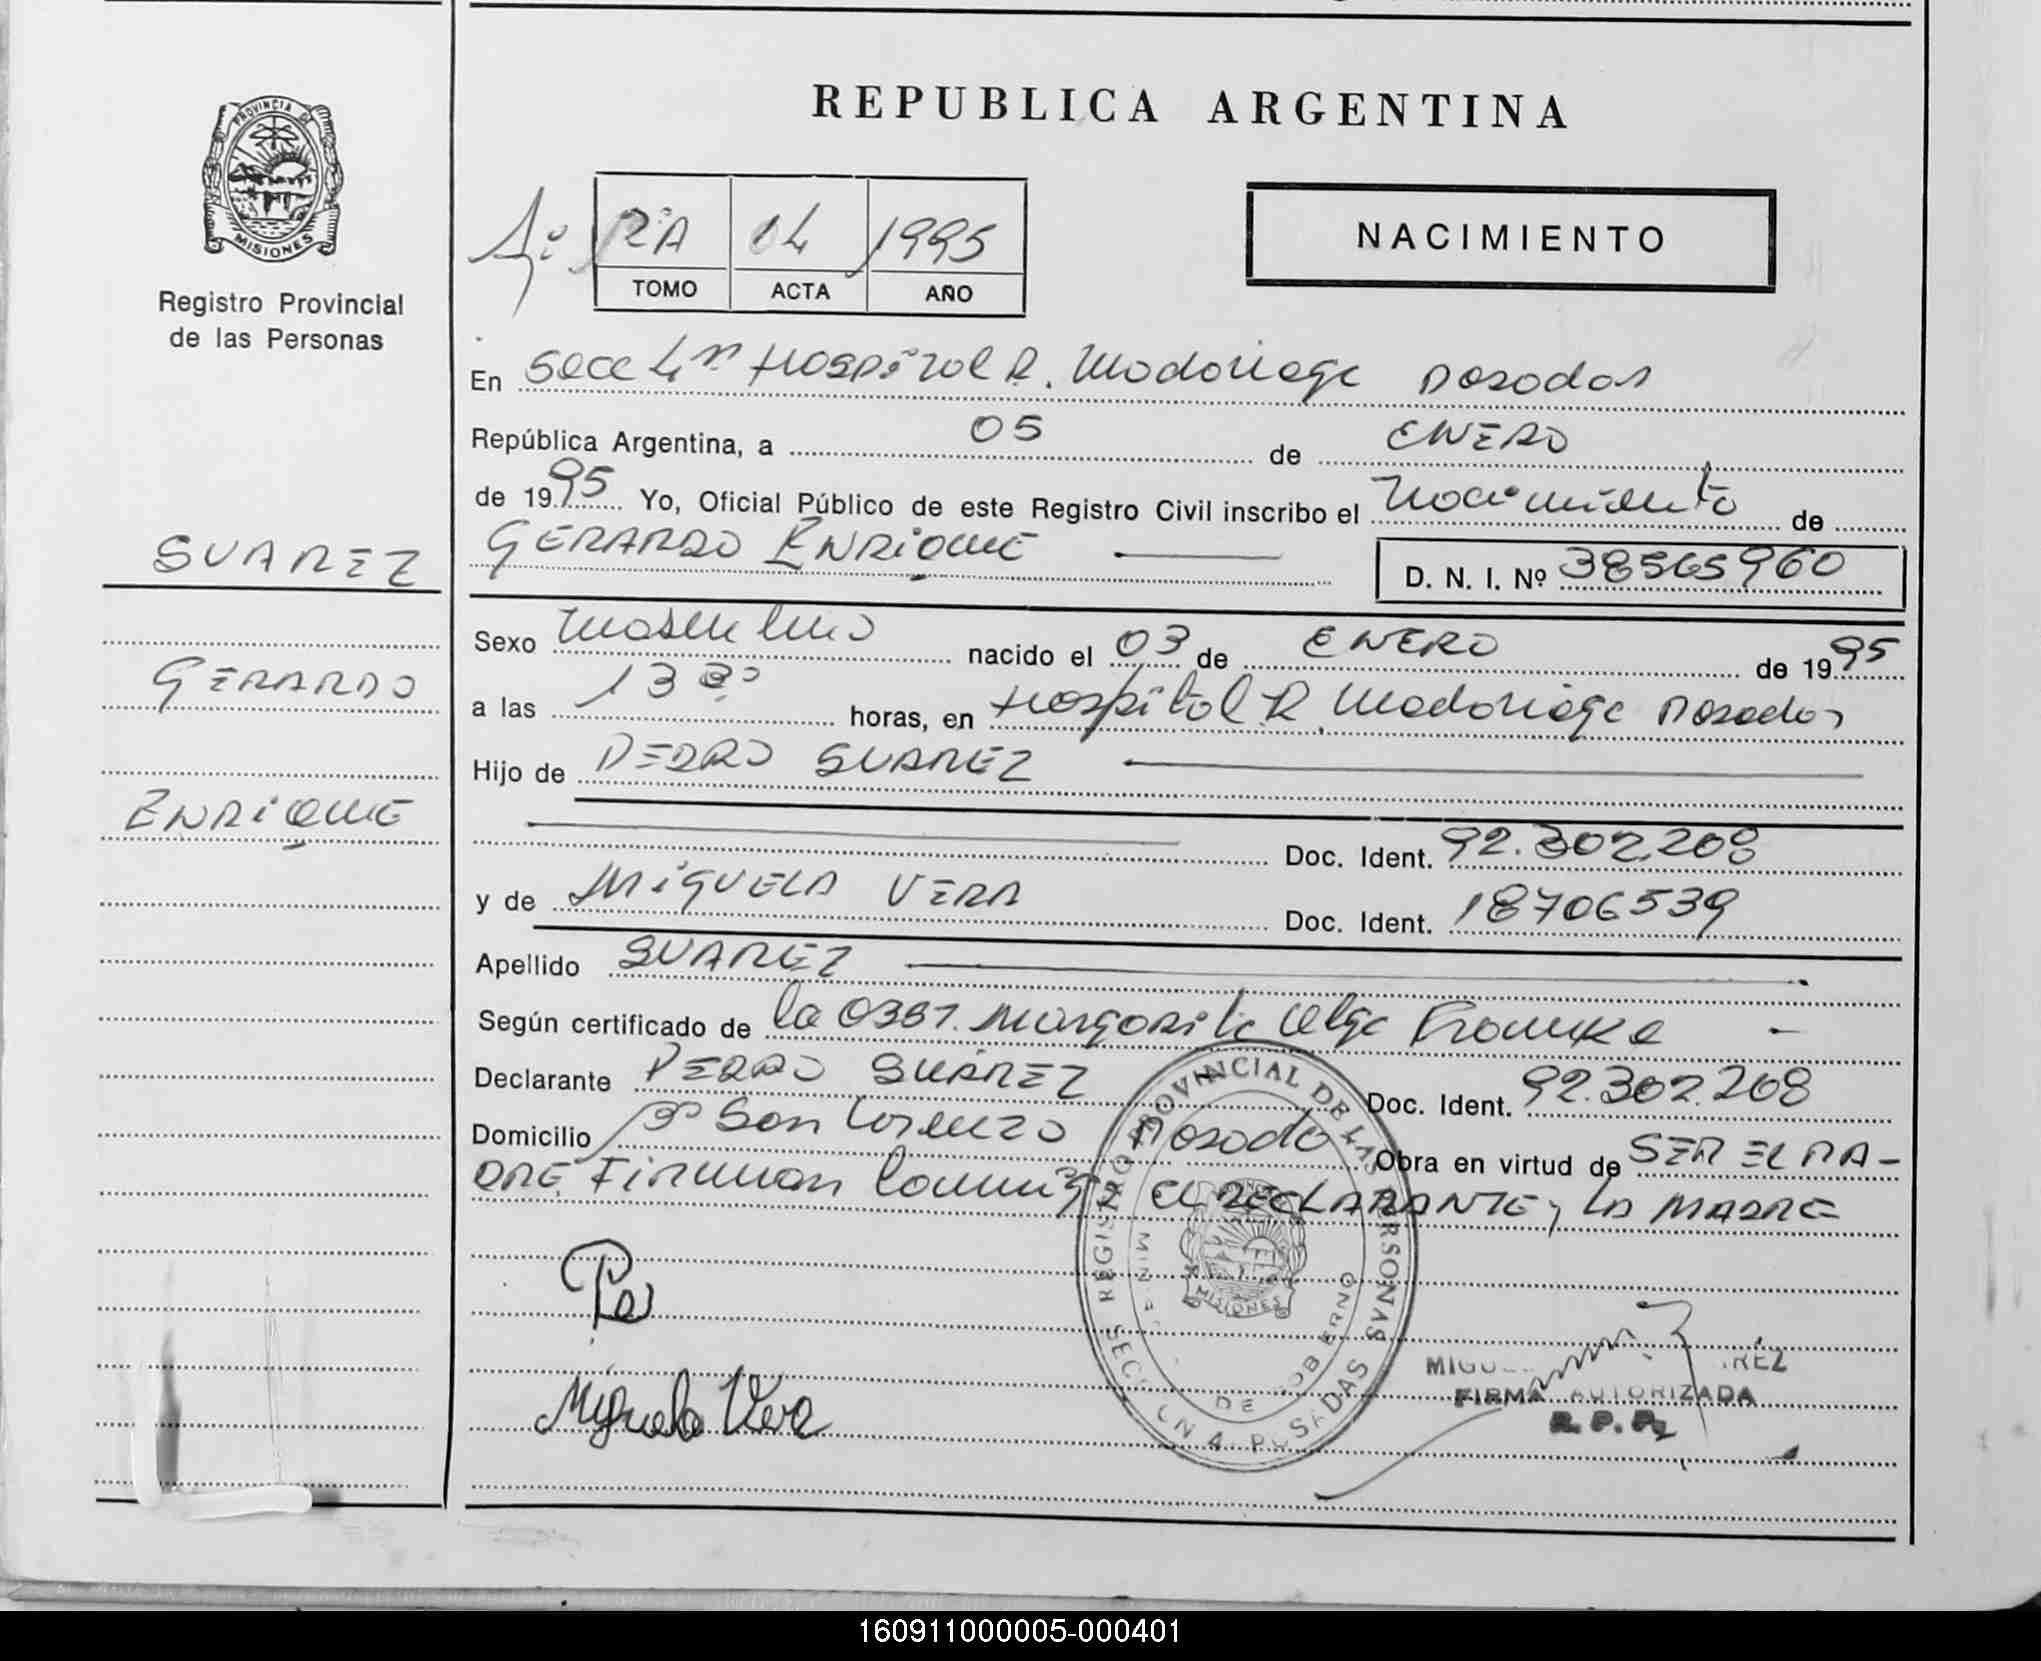 REPUBLICA ARGENTINA
PROVINCIA DE
MISIONES
Registro Provincial
de las Personas
1º 1ªA 14 1995
TOMO ACTA AÑO
NACIMIENTO
En Secc 4ª Hospital R. Madariaga Posadas
República Argentina, a 05 de ENERO
de 1995 Yo, Oficial Público de este Registro Civil inscribo el nacimiento de
GERARDO ENRIQUE D. N. I. Nº 38565960
SUAREZ
GERARDO
ENRIQUE
Sexo masculino nacido el 03 de ENERO de 1995
a las 13 30 horas, en Hospital R. Madariaga Posadas
Hijo de PEDRO SUAREZ
Doc. Ident. 92.302.208
y de MIGUELA VERA Doc. Ident. 18706539
Apellido SUAREZ
Según certificado de la Obst. Margarita Olga
Declarante PEDRO SUAREZ Doc. Ident. 92.302.208
Domicilio Bº San Lorenzo Posadas Obra en virtud de SER EL PA-
DRE Firman conmigo EL DECLARANTE y LA MADRE
Miguela Vera
REGISTRO PROVINCIAL DE LAS PERSONAS
SECCION 4 POSADAS
DE GOBIERNO
MISIONES
FIRMA AUTORIZADA
R. P. P.
160911000005-000401